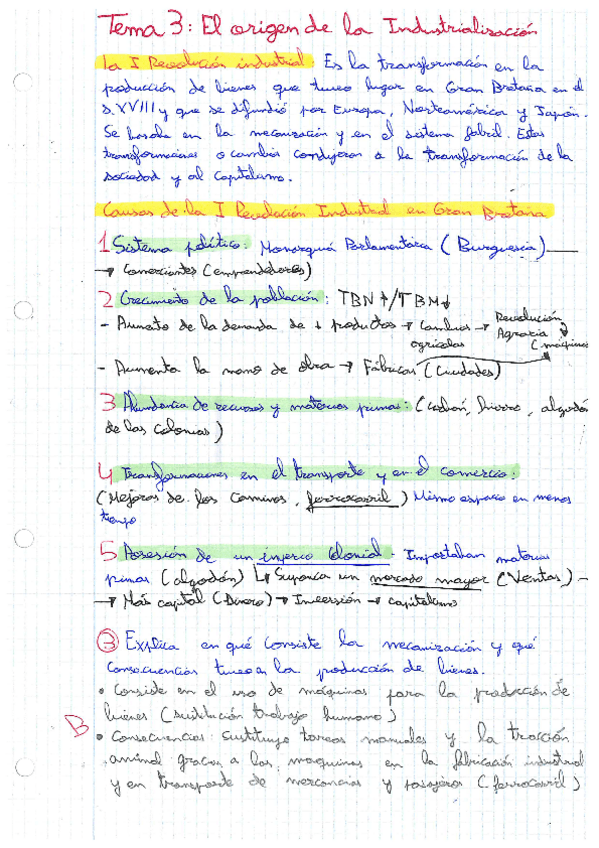 Tema 3: El origen de la Industrialización
La I Revolución industrial: Es la transformación en la
producción de bienes que tuvo lugar en Gran Bretaña en el
s.XVIII y que se difundió por Europa, Norteamérica y Japón.
Se basaba en la mecanización y en el sistema fabril. Estas
transformaciones o cambios condujeron a la transformación de la
sociedad y al Capitalismo.
Causas de la I Revolución Industrial en Gran Bretaña
1 Sistema político: Monarquía Parlamentaria (Burguesía)
→ Comerciantes (emprendedores)
2 Crecimiento de la población: TBN↑/TBM↓
- Aumento de la demanda de + productos → Cambios → Revolución
agrícolas Agraria ↓
(máquinas
- Aumenta la mano de obra → Fábricas (Ciudades)
3 Abundancia de recursos y materias primas: (carbón, hierro, algodón
de las colonias)
4 Transformaciones en el transporte y en el comercio:
(Mejoras de los caminos, ferrocarril) Mismo espacio en menos
tiempo
5 Posesión de un imperio colonial - Importaban materias
primas (algodón) ↳ Suponía un mercado mayor (Ventas) -
→ Más capital (Dinero) → Inversión → capitalismo
③ Explica en qué consiste la mecanización y qué
consecuencias tuvo en la producción de bienes.
• Consiste en el uso de máquinas para la producción de
bienes (sustitución trabajo humano)
B
• Consecuencias: sustituyo tareas manuales y la tracción
animal gracias a las maquinas en la fabricación industrial
y en transporte de mercancías y pasajeros (ferrocarril)